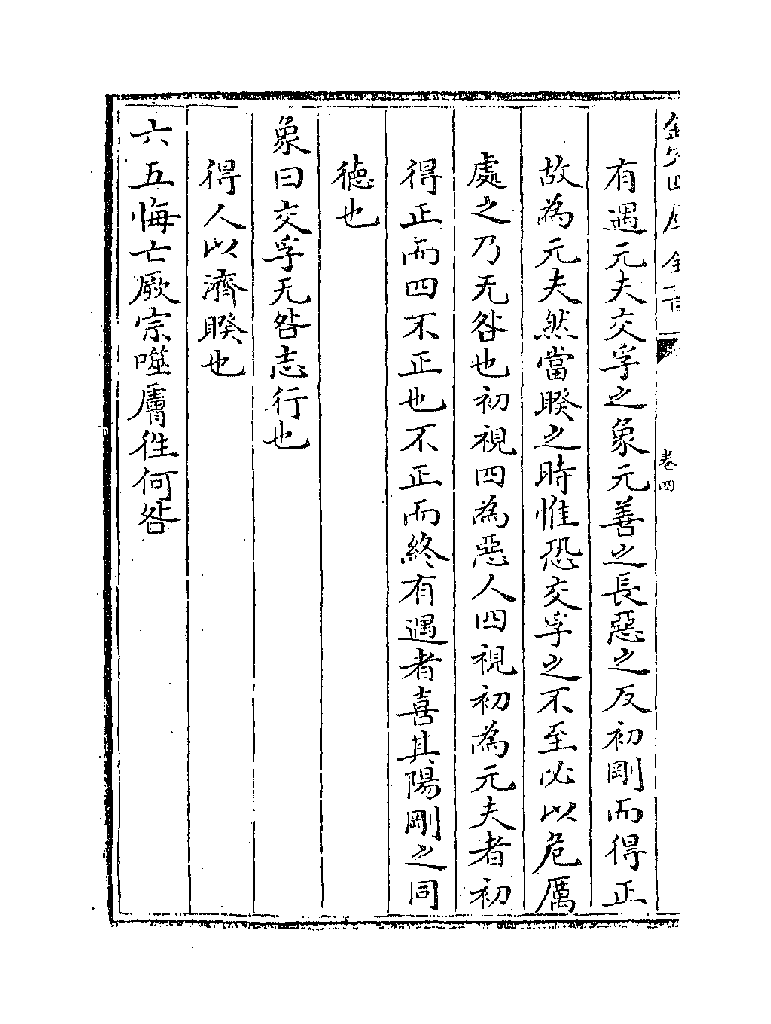 欽定四庫全書
卷四
有遇元夫交孚之象元善之長惡之反初剛而得正
故為元夫然當睽之時惟恐交孚之不至必以危厲
處之乃无咎也初視四為惡人四視初為元夫者初
得正而四不正也不正而終有遇者喜其陽剛之同
德也
象曰交孚无咎志行也
得人以濟睽也
六五悔亡厥宗噬膚徃何咎